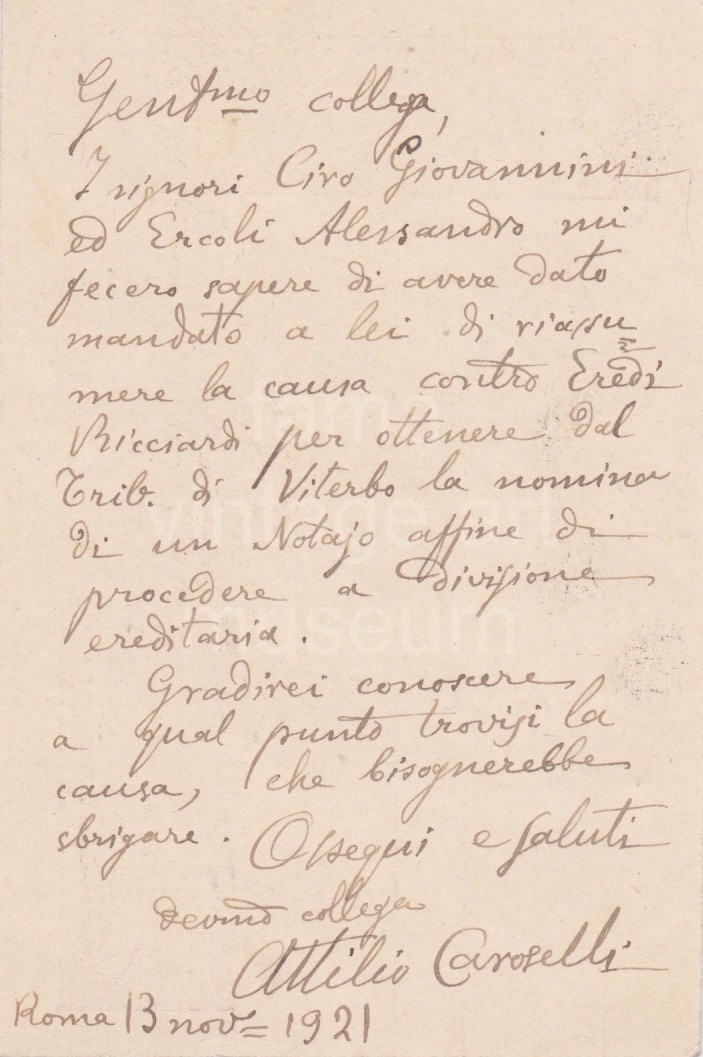 Gentmo collega,
I signori Ciro Giovannini
ed Ercoli Alessandro mi
fecero sapere di avere dato
mandato a lei di riassu
mere la causa contro Eredi
Ricciardi per ottenere dal
Trib. di Viterbo la nomina
di un Notajo affine di
procedere a divisione
ereditaria.
Gradirei conoscere
a qual punto trovisi la
causa, che bisognerebbe
sbrigare. Ossequi e saluti
devmo collega
Attilio Caroselli
Roma 13 nove = 1921
fame
vintage art
museum